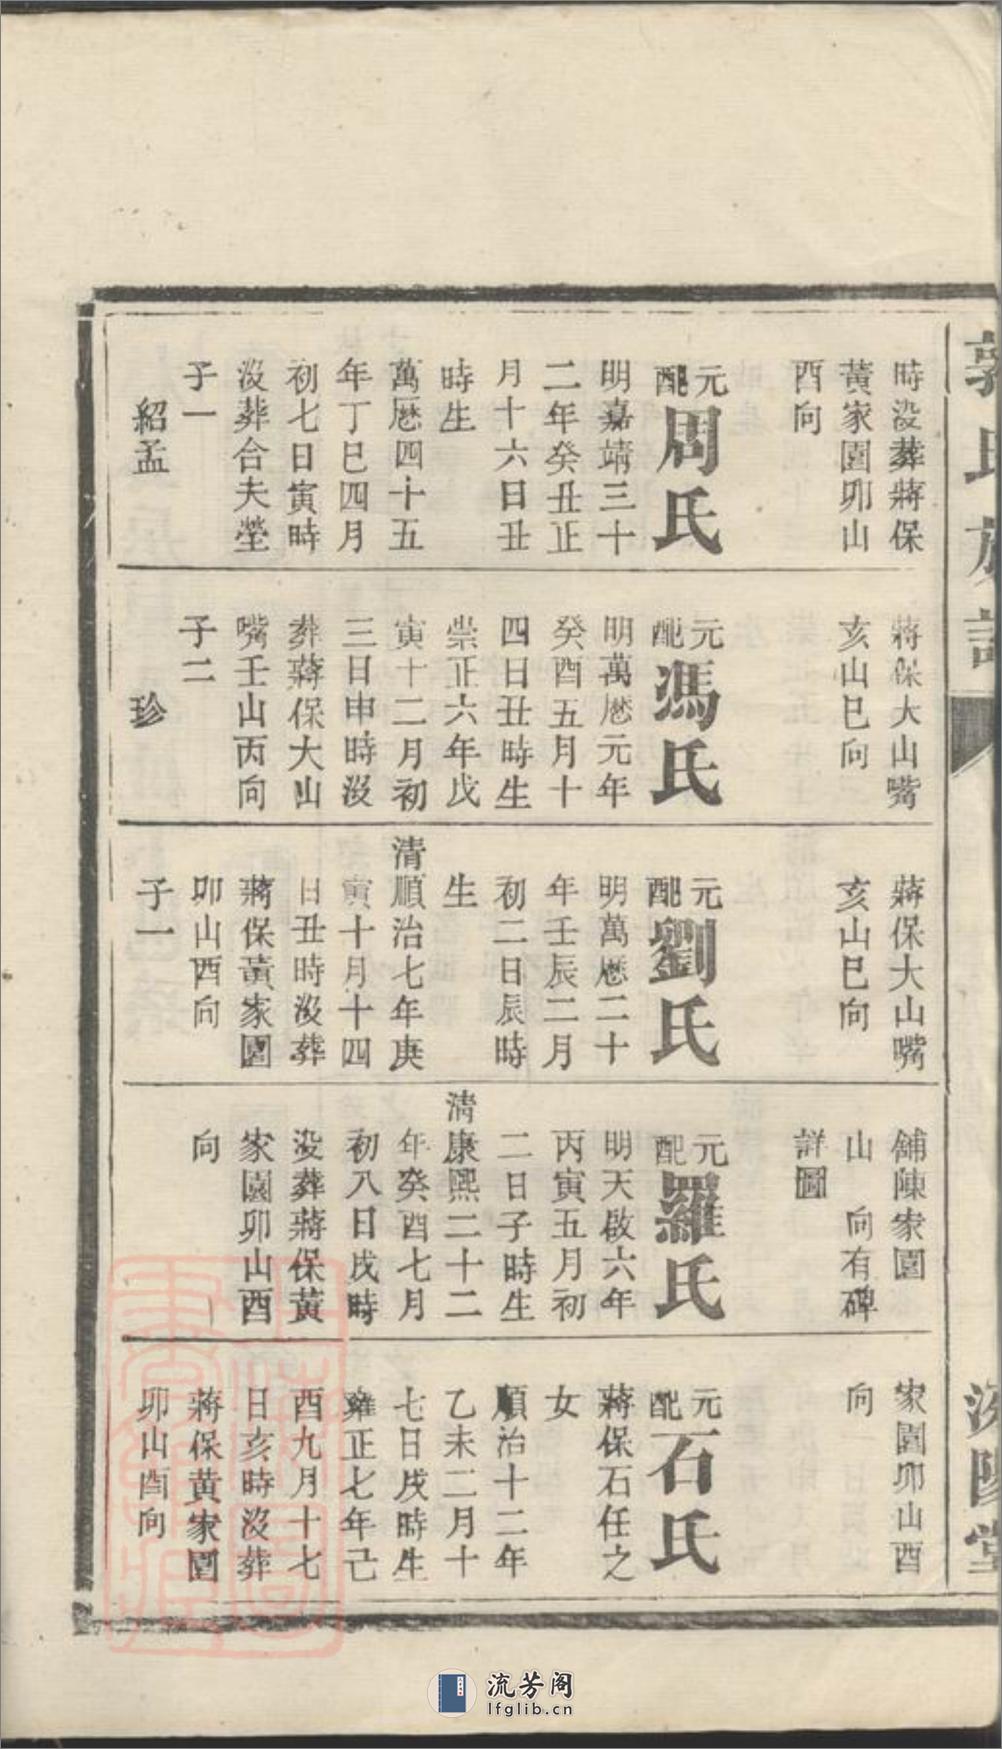 郭氏族譜
汾陽堂
時没葬蔣保
黄家園卯山
酉向
元配周氏
明嘉靖三十
二年癸丑正
月十六日丑
時生
萬厯四十五
年丁巳四月
初七日寅時
没葬合夫塋
子一
紹孟
蔣保大山嘴
亥山巳向
元配馮氏
明萬厯元年
癸酉五月十
四日丑時生
崇正六年戊
寅十二月初
三日申時没
葬蔣保大山
嘴壬山丙向
子二
珍
蔣保大山嘴
亥山巳向
元配劉氏
明萬厯二十
年壬辰二月
初二日辰時
生
清順治七年庚
寅十月十四
日丑時没葬
蔣保黄家園
卯山酉向
子一
舖陳家園
山 向有碑
詳圖
元配羅氏
明天啟六年
丙寅五月初
二日子時生
清康熙二十二
年癸酉七月
初八日戌時
没葬蔣保黄
家園卯山酉
向
家園卯山酉
向
元配石氏
蔣保石任之
女
順治十二年
乙未二月十
七日戌時生
雍正七年己
酉九月十七
日亥時没葬
蔣保黄家園
卯山酉向
流芳阁
lfglib.cn